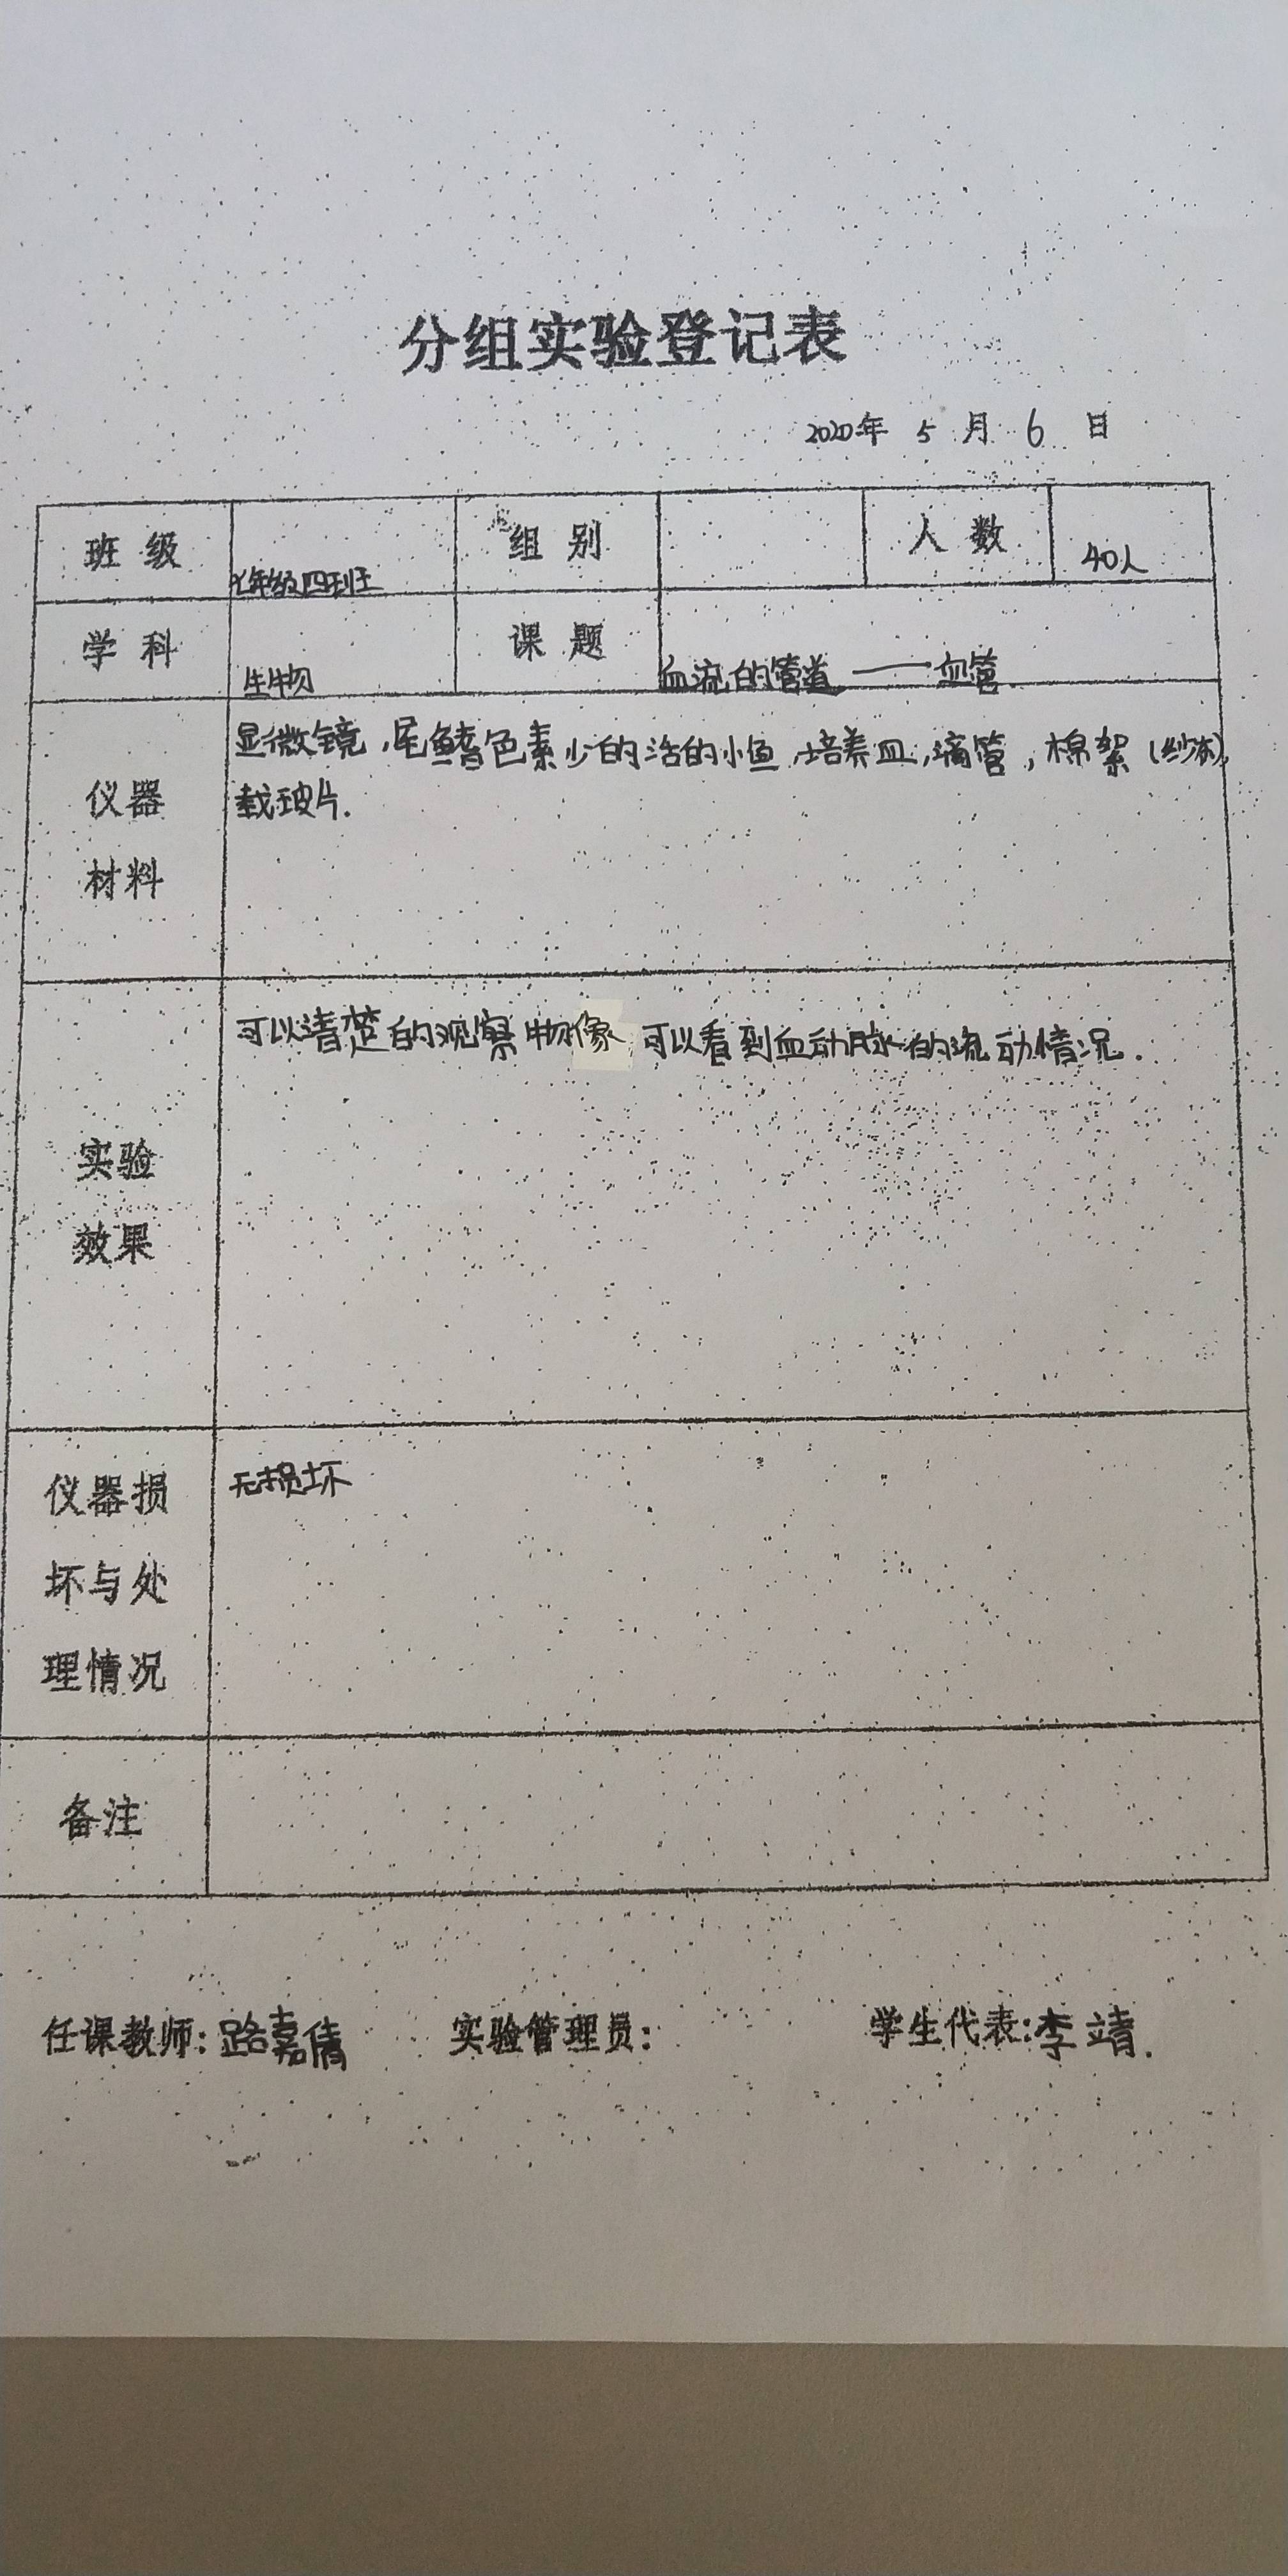 分组实验登记表
2020年 5 月 6 日
班 级 七年级四班 组 别 人 数 40人
学 科 生物 课 题 血流的管道——血管
仪器 材料 显微镜,尾鳍色素少的活的小鱼,培养皿,滴管,棉絮(纱布),
载玻片.
实验 效果 可以清楚的观察物像,可以看到血动脉的流动情况.
仪器损 无损坏
坏与处
理情况
备注
任课教师:路嘉倩 实验管理员: 学生代表:李靖.